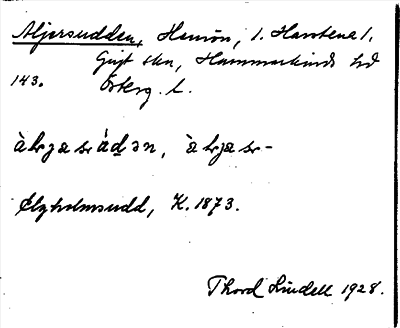 Aljersudden, Hemön, 1. Harstena 1.
Gryt skn, Hammarkinds hd
143. Österg. l.
Elgholmsudd, K. 1873.
Thord Lindell 1928.